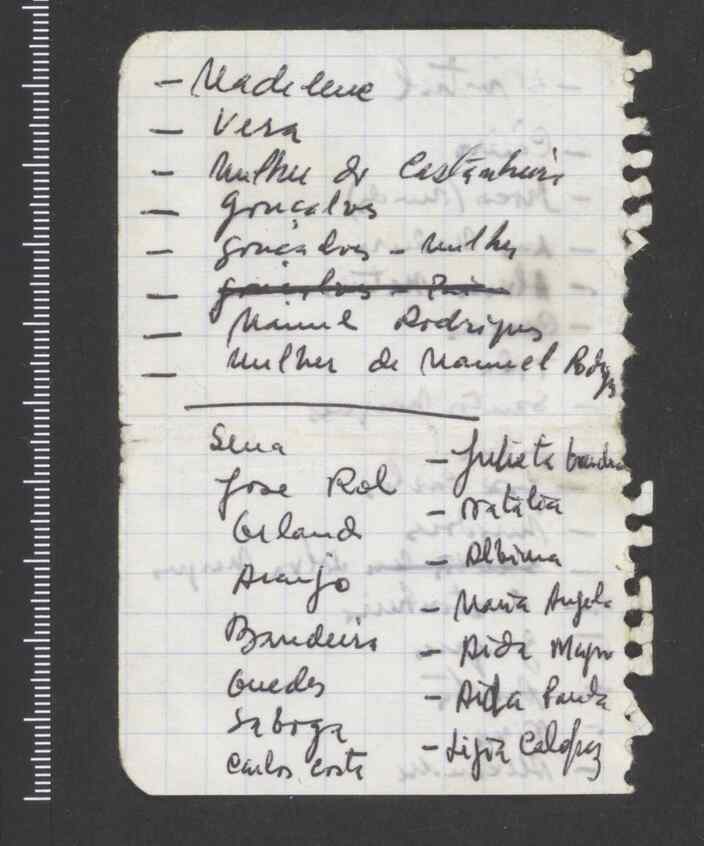 - Madelene
- Vera
- Mulher de Castanheira
- Gonçalves
- Gonçalves - Mulher
- Gonçalves - Pai
- Manuel Rodrigues
- Mulher de Manuel Rodrigues
Sena
José Rol
Orlando
Araujo
Bandeira
Guedes
Saboga
Carlos Costa
- Julieta
- Natália
- Albina
- Maria Angela
- Aida Magro
- Aida Paula
- Ligia Calapez